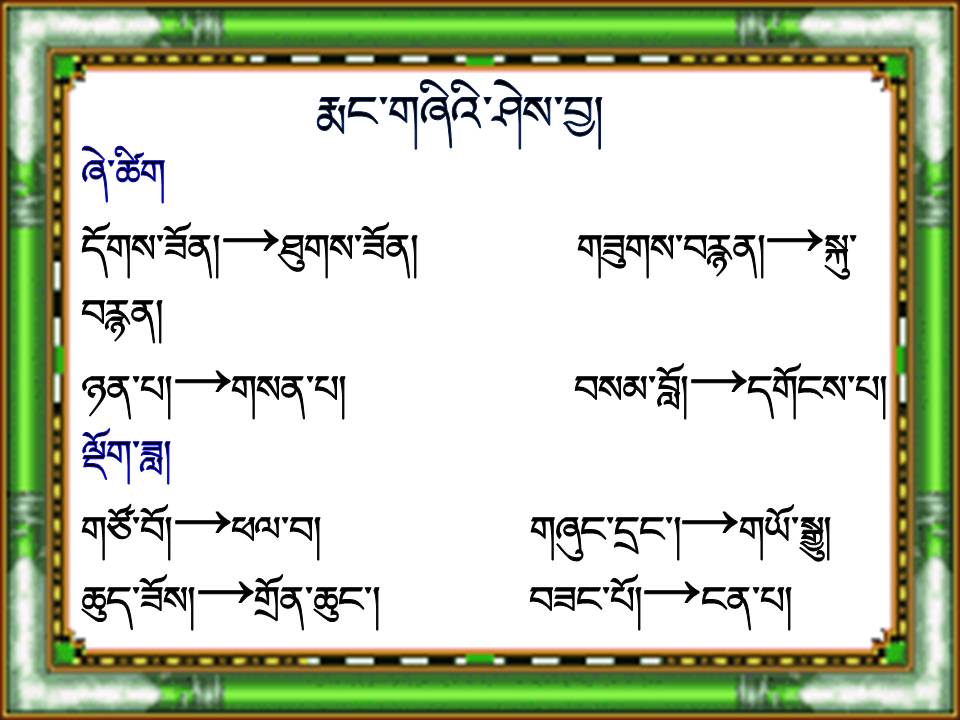 རྨང་གཞིའི་ཤེས་བྱ།
ཞེ་ཚིག
དོགས་ཟོན།→ཐུགས་ཟོན། གཟུགས་བརྙན།→སྐུ་
བརྙན།
ཉན་པ།→གསན་པ། བསམ་བློ།→དགོངས་པ།
ལྡོག་ཟླ།
གཙོ་བོ།→ཕལ་བ། གཞུང་དྲང་།→གཡོ་སྒྱུ།
ཆུད་ཟོས།→གྲོན་ཆུང་། བཟང་པོ།→ངན་པ།